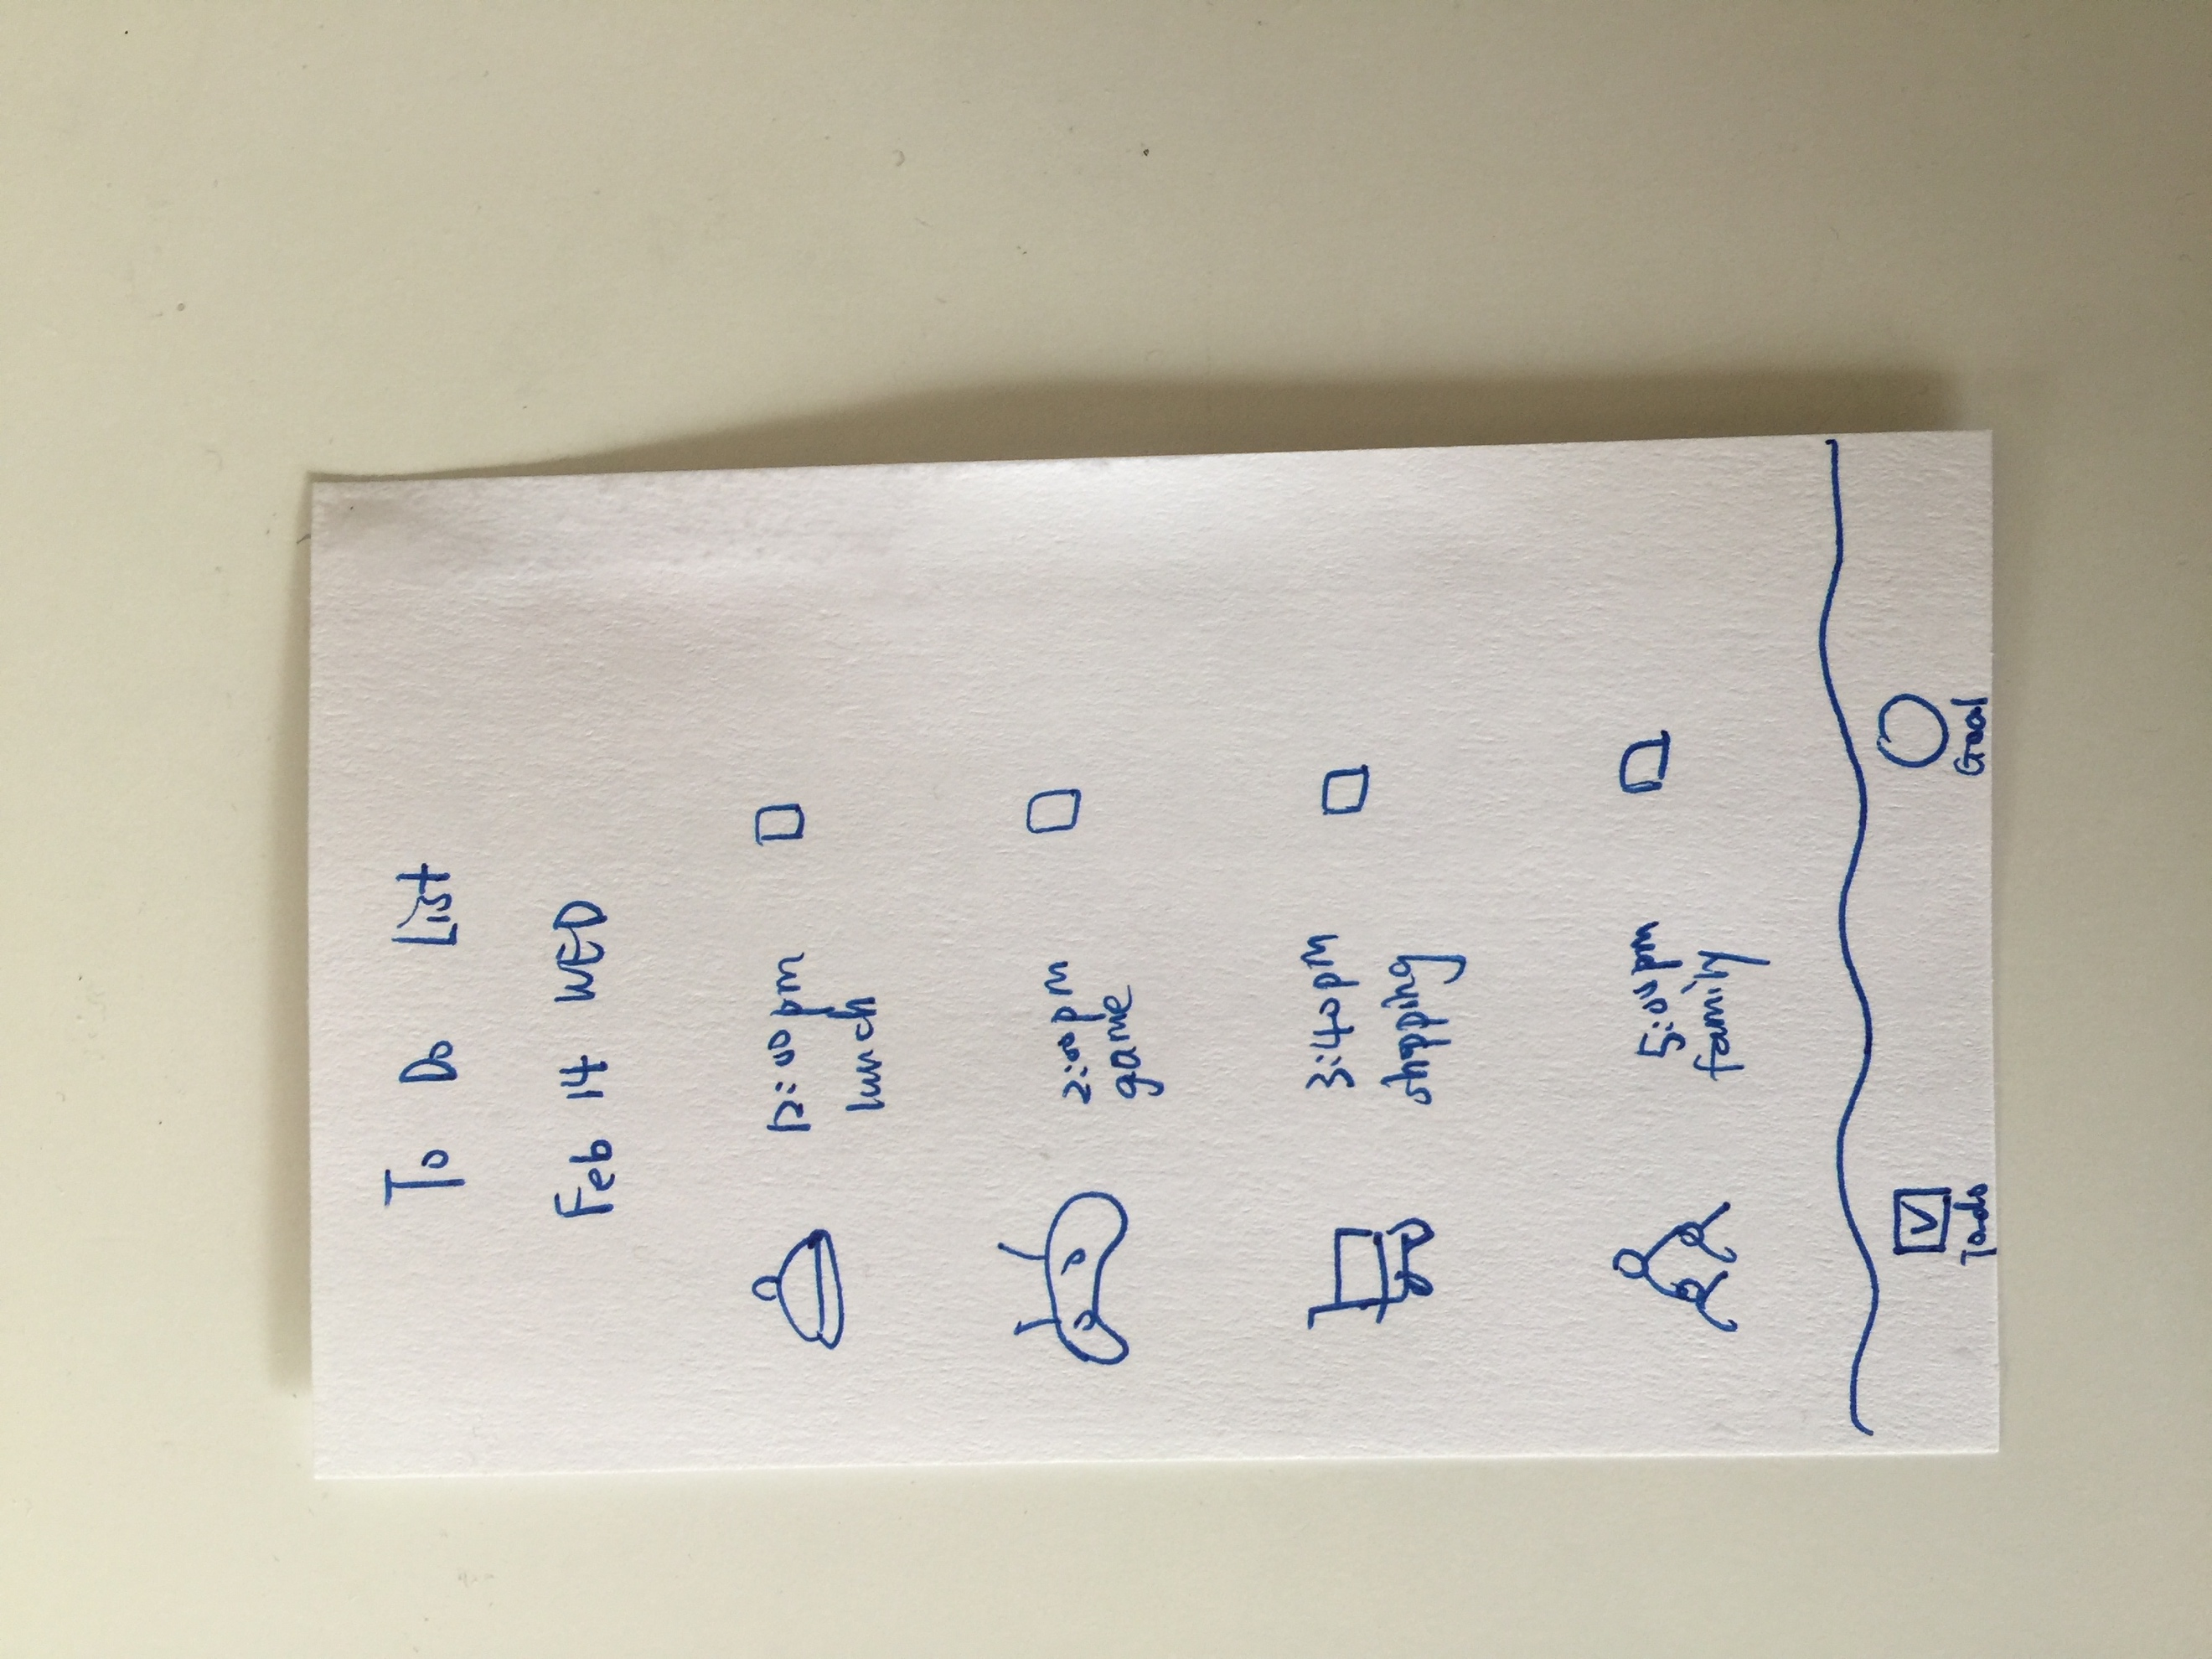 To Do List
Feb 14 WED
12:00 pm
lunch
2:00 pm
game
3:40 pm
shopping
5:00 pm
family
Todo
Goal